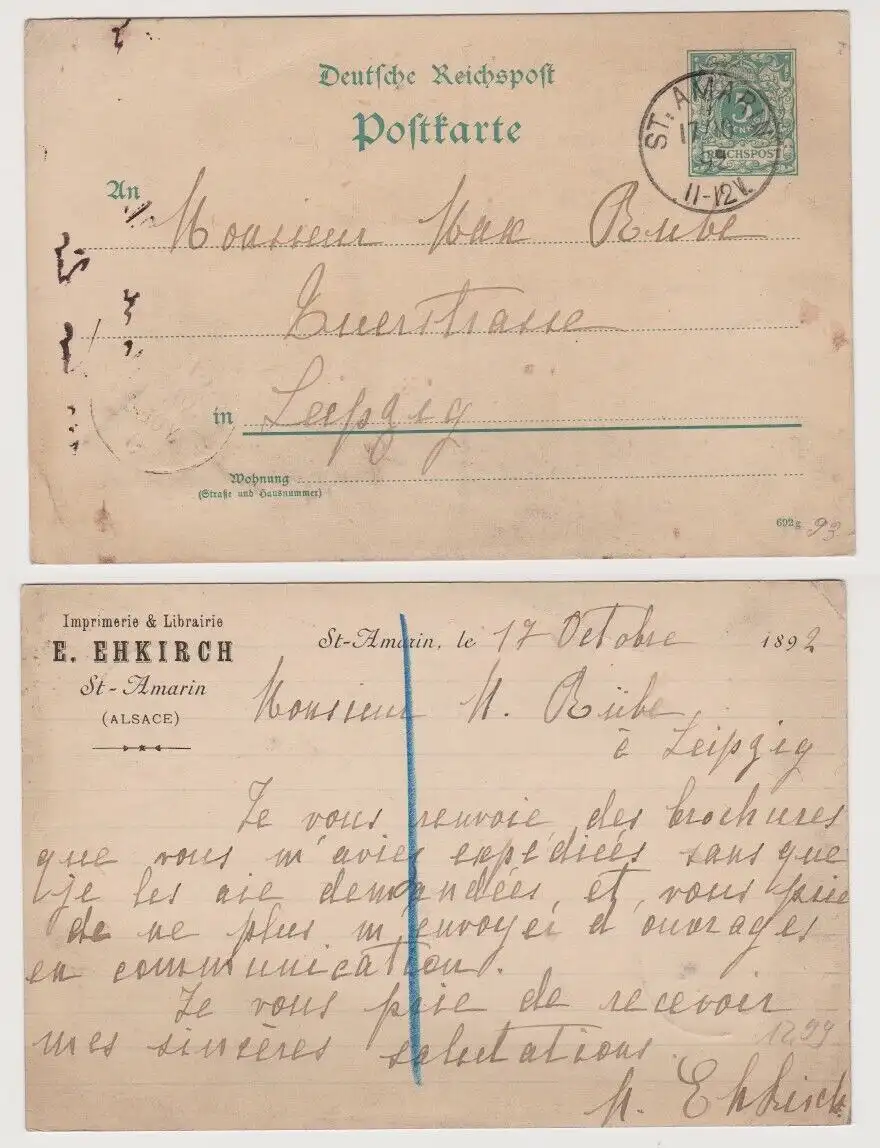 Deutsche Reichspost
Postkarte
5
REICHSPOST
ST. AMARIN
17/10
92
11-12V.
An
Monsieur Max Rübe
Querstrasse
in Leipzig
Wohnung
(Straße und Hausnummer)
692g
93
Imprimerie & Librairie
E. EHKIRCH
St-Amarin
(ALSACE)
St-Amarin, le 17 Octobre 1892
Monsieur M. Rübe
à Leipzig
Je vous renvoie des brochures
que vous m'aviez expédiées sans que
je les aie demandées, et, vous prie
de ne plus m'envoyer d'ouvrages
en communication.
Je vous prie de recevoir
mes sincères salutations.
1299
Ehkirch